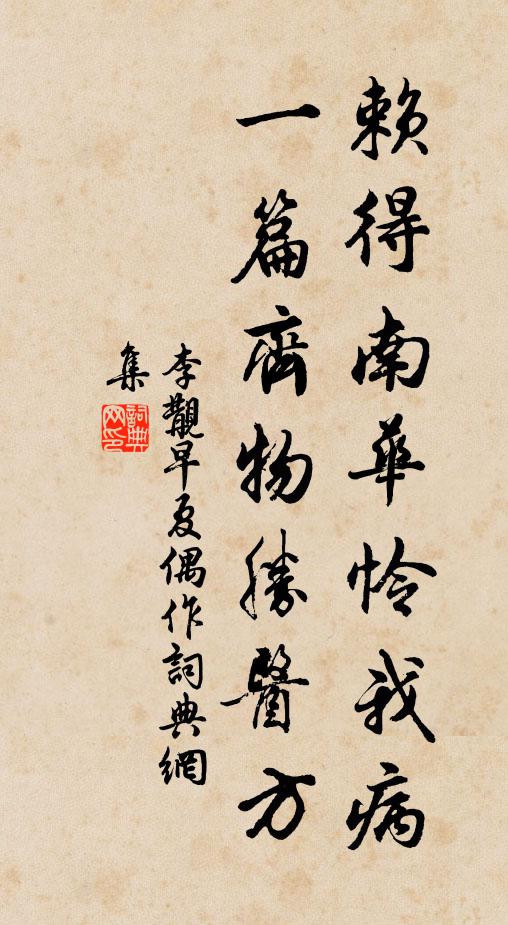 賴得南華怜我病
一篇齊物勝醫方
李觀早夏偶作詞典網
集
詞典
网印